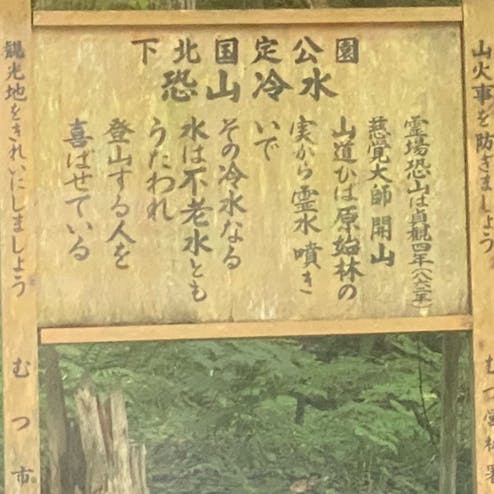 下北国定公園
恐山冷水
霊場恐山は貞観四年(八六二年)
慈覚大師 開山
山道ひは原始林の
実から霊水噴き
いで
その冷水なる
水は不老水とも
うたわれ
登山する人を
喜ばせている
山火事を防ぎましょう
むつ営林署
観光地をきれいにしましょう
むつ市